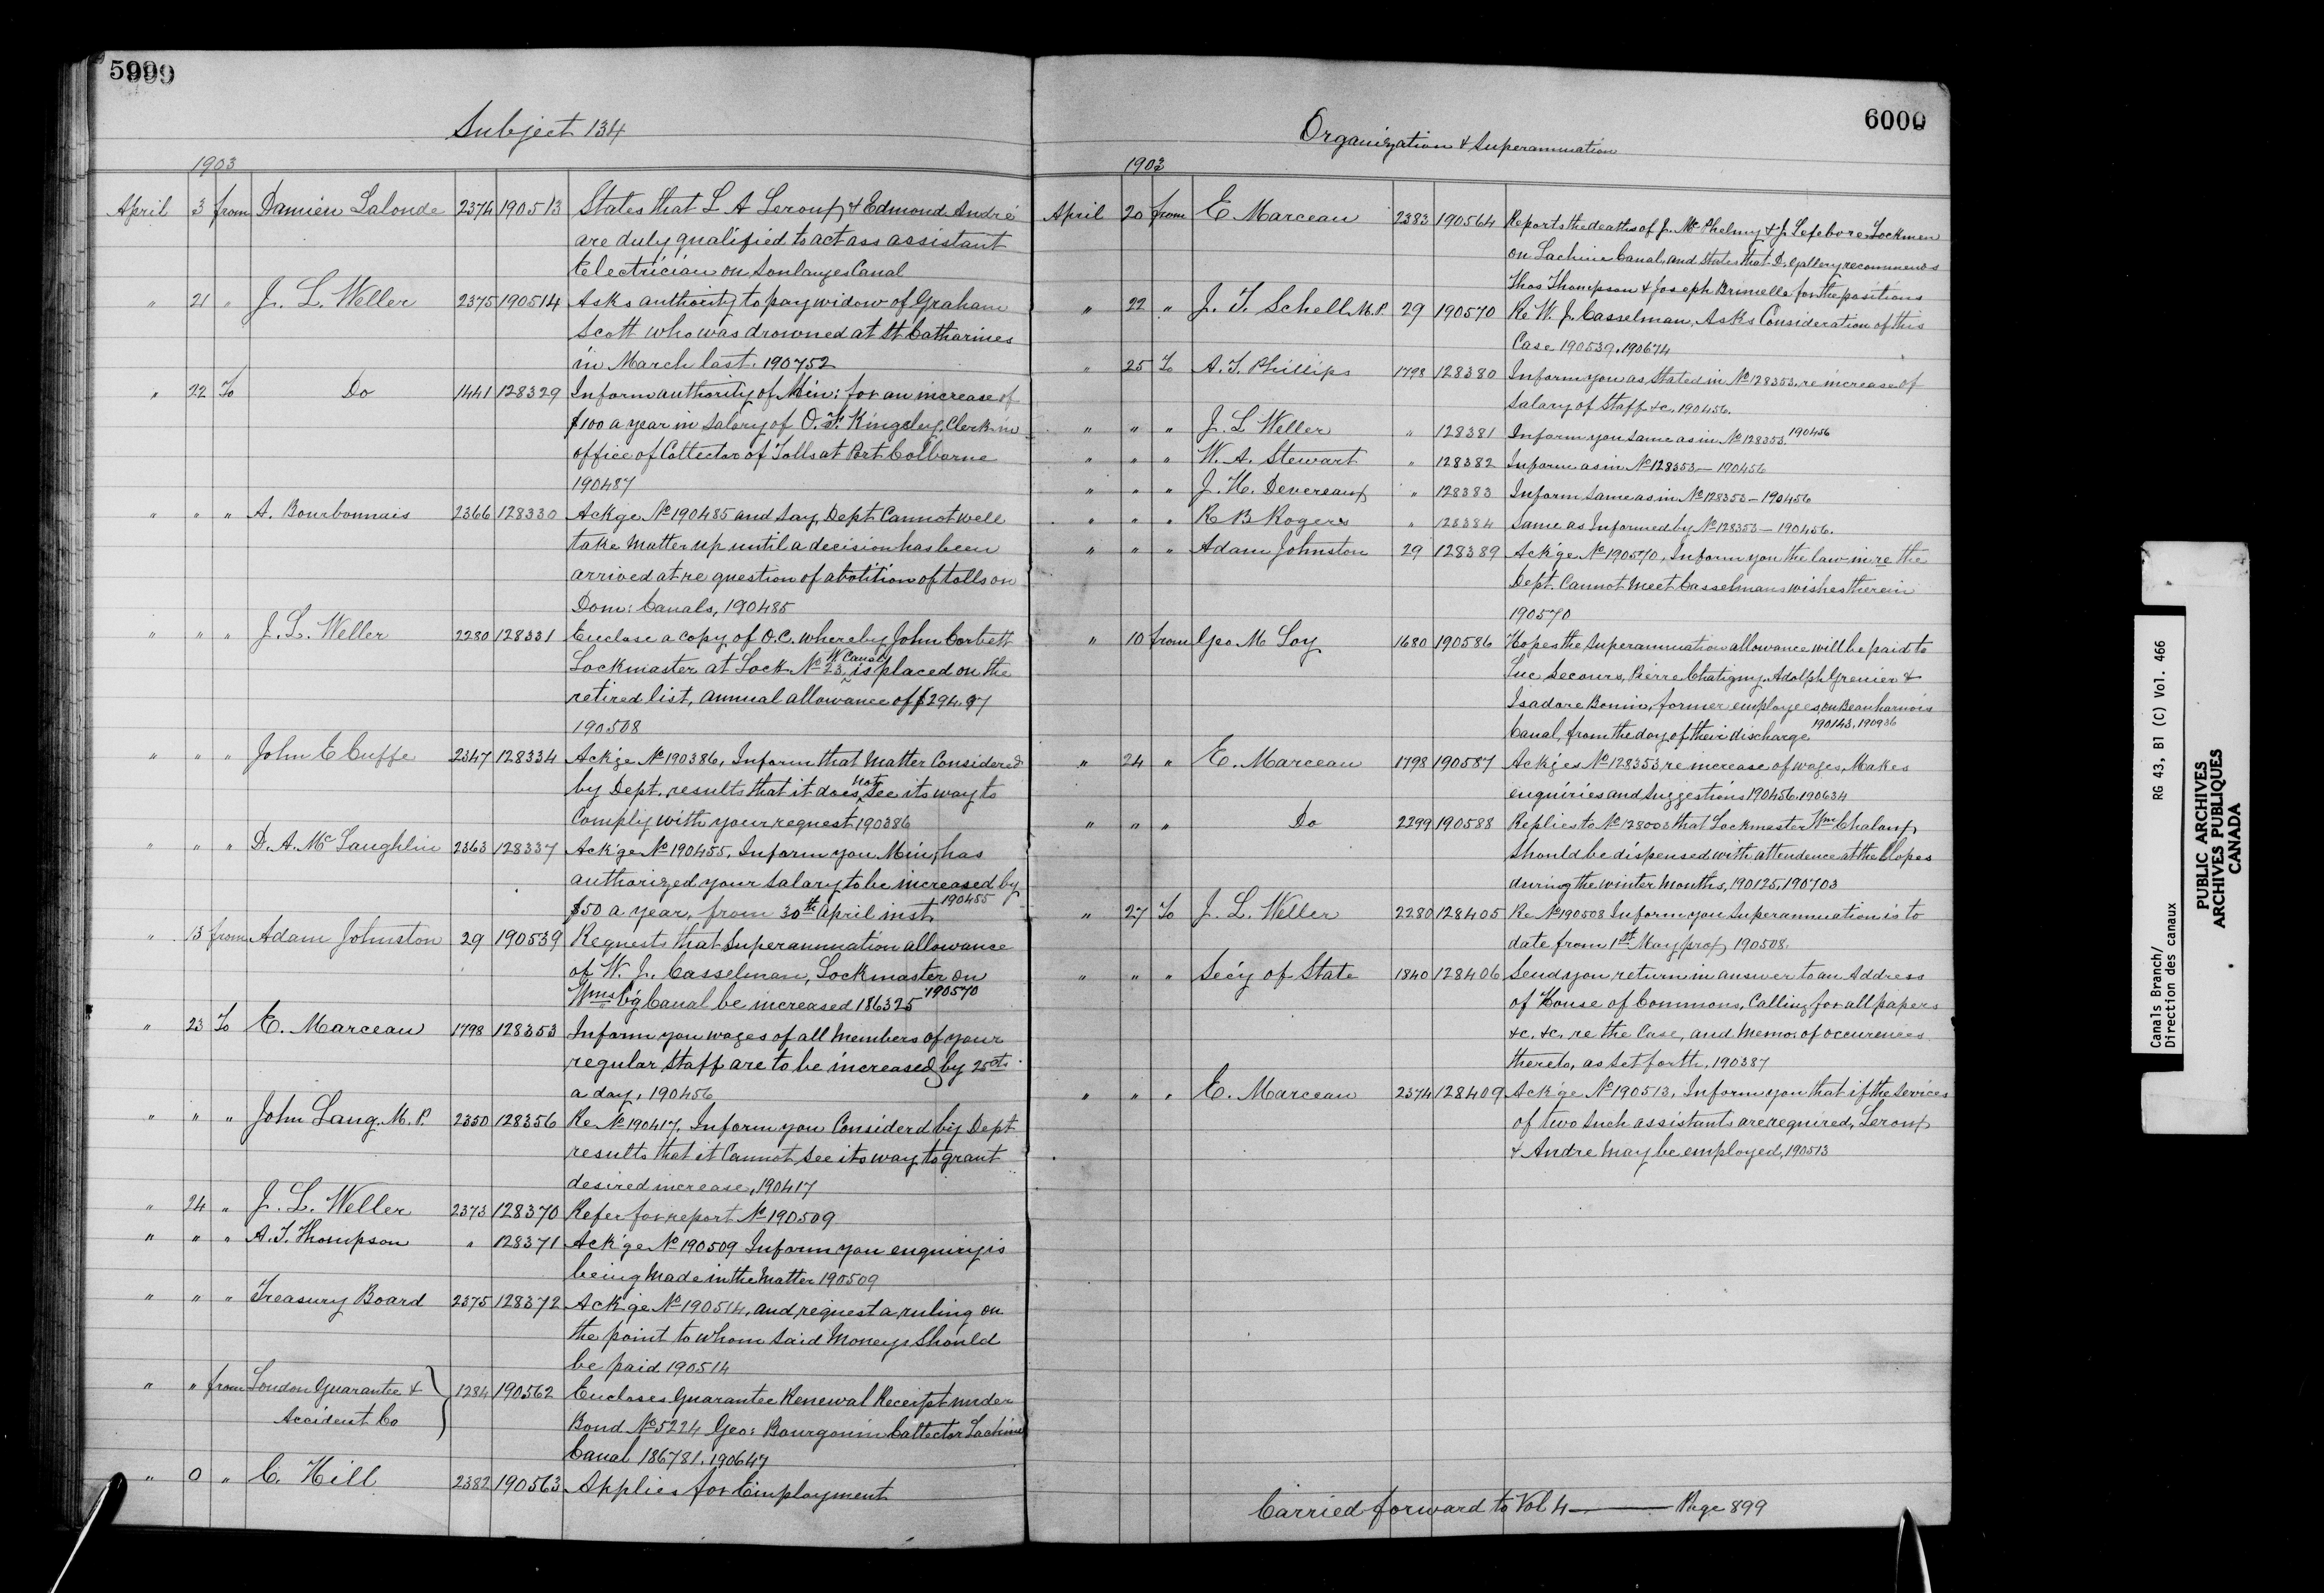 5999
Subject 134
1903
April 3 from Damien Lalonde 2374 190513 States that L A Leroux & Edmond André
are duly qualified to act ass assistant
Electrician on Soulanges Canal
" 21 " J. L. Weller 2375 190514 Asks authority to pay widow of Graham
Scott who was drowned at St Catharines
in March last. 190752
" 22 To Do 1441 128329 Inform authority of Min: for an increase of
$100 a year in salary of O. F. Kingsley, Clerk in
office of Collector of Tolls at Port Colborne
190487
" " " A. Bourbonnais 2366 128330 Ackge No 190485 and say Dept Cannot well
take Matter up until a decision has been
arrived at re question of abolition of tolls on
Dom: Canals, 190485
" " " J. L. Weller 2280 128331 Enclose a copy of O.C. whereby John Corbett
Lockmaster at Lock No 23, W. Canal is placed on the
retired list, annual allowance of $294.97
190508
" " " John C Cuffe 2347 128334 Ack'ge No 190386, Inform that Matter Considered
by Dept. results that it does not see its way to
Comply with your request 190386
" " " D. A. McLaughlin 2363 128337 Ack'ge No 190455, Inform you Min: has
authorized your salary to be increased by
$50 a year, from 30th April inst, 190455
" 13 from Adam Johnston 29 190539 Requests that Superannuation allowance
of W. J. Casselman, Lockmaster on
Wmsb'g Canal be increased 186325 190570
" 23 To E. Marceau 1798 128353 Inform you wages of all Members of your
regular Staff are to be increased by 25cts
a day, 190456
" " " John Lang. M. P. 2350 128356 Re No 190417, Inform you Considerd by Dept
results that it Cannot see its way to grant
desired increase, 190417
" 24 " J. L. Weller 2373 128370 Refer for report No 190509
" " " A. T. Thompson " 128371 Ack'ge No 190509 Inform you enquiry is
being Made in the Matter 190509
" " " Treasury Board 2375 128372 Ack'ge No 190514, and request a ruling on
the point to whom said Moneys Should
be paid 190514
" " from London Guarantee & 1284 190562 Encloses Guarantee Renewal Receipt under
Accident Co Bond No 5224 Geo: Bourgouin Collector Lachine
Canal 186781, 190647
" 0 " C. Hill 2382 190563 Applies for Employment
6000
Organization & Superannuation
1903
April 20 from E. Marceau 2383 190564 Reports the deaths of J. & J. Lefebvre Lockmen
on Lachine Canal, and States that D. Gallery recommends
Thos Thompson & Joseph Brunelle for the positions
" 22 " J. T. Schell M.P. 29 190570 Re W. J. Casselman, Asks Consideration of this
Case 190539. 190674
" 25 To A. T. Phillips 1798 128380 Inform you as Stated in No 128353, re increase of
Salary of Staff &c. 190456.
" " " J. L Weller " 128381 Inform you same as in No 128353. 190456
" " " W. A. Stewart " 128382 Inform as in No 128353 – 190456
" " " J. H. Devereaux " 128383 Inform same as in No 128353 – 190456
" " " R B Rogers " 128384 Same as Informed by No 128353 – 190456.
" " " Adam Johnston 29 128389 Ack'ge No 190570, Inform you the law in re the
Dept. Cannot Meet Casselmans wishes therein
190570
" 10 from Geo M Loy 1680 190586 Hopes the Superannuation allowance will be paid to
Luc Secours, Pierre Chatigny, Adolph Grenier &
Isadore Bonin, former employees, on Beauharnois
Canal, from the day of their discharge 190143, 190936
" 24 " E. Marceau 1798 190587 Ackges No 128353 re increase of wages, Makes
enquiries and suggestions 190456. 190634
" " " Do 2299 190588 Replies to No 128003 that Lockmaster Wm Chaloux
should be dispensed with attendence at the Slopes
during the winter Months, 190125, 190703
" 27 To J. L. Weller 2280 128405 Re No 190508 Inform you Superannuation is to
date from 1st May prox 190508.
" " " Sec'y of State 1840 128406 Send you return in answer to an Address
of House of Commons, Calling for all papers
&c. &c. re the Case, and Memo: of occurences
thereto, as Set forth, 190387
" " " E. Marceau 2374 128409 Ack'ge No 190513, Inform you that if the Services
of two such assistants are required, Leroux
& Andre May be employed, 190513
Carried forward to Vol 4 — Page 899
Canals Branch/
Direction des canaux
RG 43, B1 (C) Vol. 466
PUBLIC ARCHIVES
ARCHIVES PUBLIQUES
CANADA